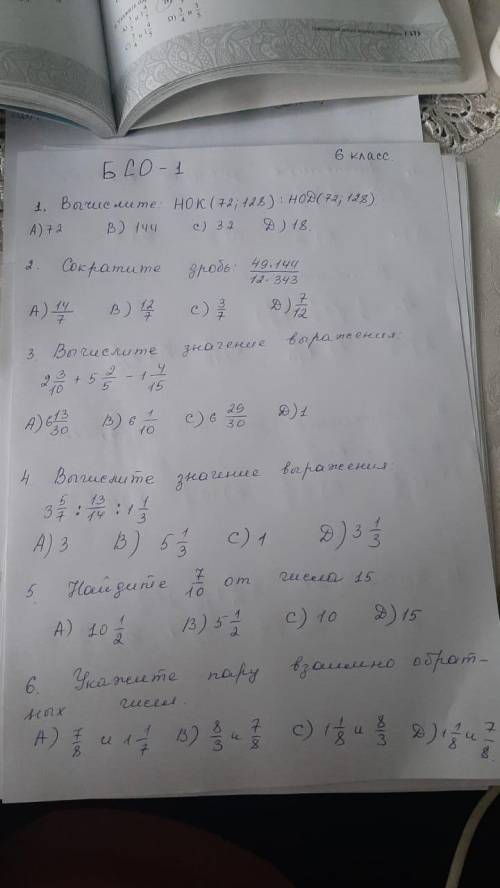 БСО-1
6 класс.
1. Вычислите: НОК(72; 128) : НОД(72; 128)
А) 72 В) 144 С) 32 Д) 18.
2. Сократите дробь: 49·144/12·343
А) 14/7 В) 12/7 С) 3/7 Д) 7/12
3. Вычислите значение выражения:
2 3/10 + 5 2/5 - 1 4/15
А) 6 13/30 В) 6 1/10 С) 6 29/30 Д) 1
4 Вычислите значение выражения:
3 5/7 : 13/14 : 1 1/3
А) 3 В) 5 1/3 С) 1 Д) 3 1/3
5. Найдите 7/10 от числа 15.
А) 10 1/2 В) 5 1/2 С) 10 Д) 15
6. Укажите пару взаимно обрат-
ных чисел.
А) 7/8 и 1 1/7 В) 8/3 и 7/8 С) 1 1/8 и 8/3 Д) 1 1/8 и 7/8.